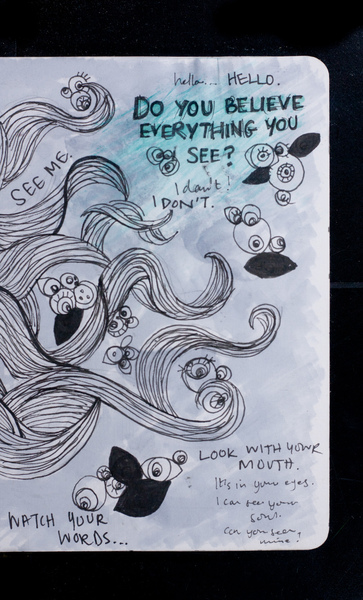 hello... HELLO.
DO YOU BELIEVE
EVERYTHING YOU
SEE?
I don't!
I DON'T.
SEE ME.
LOOK WITH YOUR
MOUTH.
It's in your eyes.
I can see your
soul.
can you see
mine?
WATCH YOUR
WORDS...